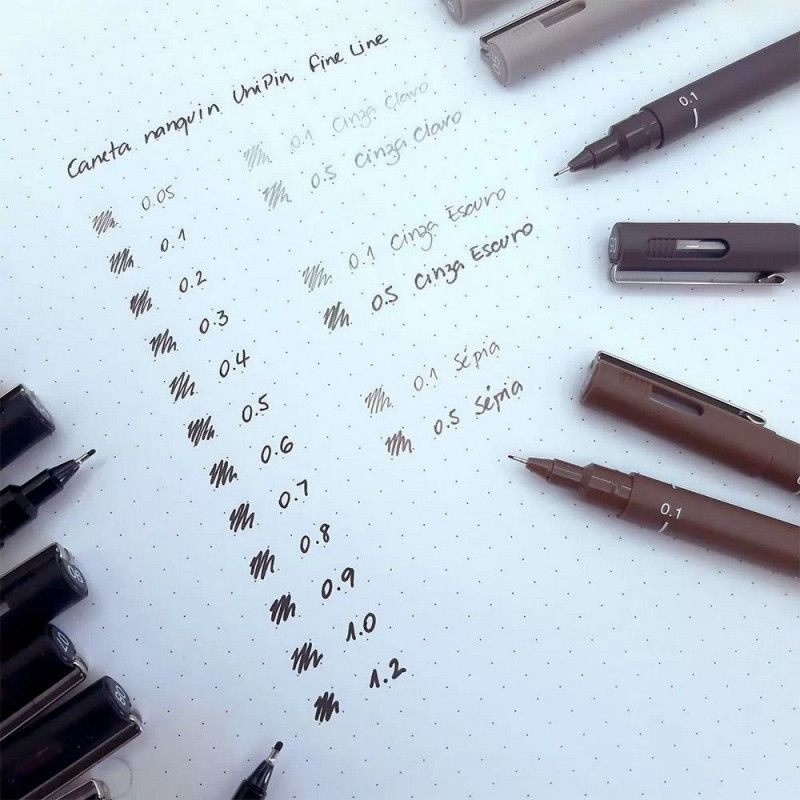 Caneta nanquin UniPin Fine Line
0.05
0.1
0.2
0.3
0.4
0.5
0.6
0.7
0.8
0.9
1.0
1.2
0.1 Cinza Claro
0.5 Cinza Claro
0.1 Cinza Escuro
0.5 Cinza Escuro
0.1 Sépia
0.5 Sépia
0.1
0.1
07
08